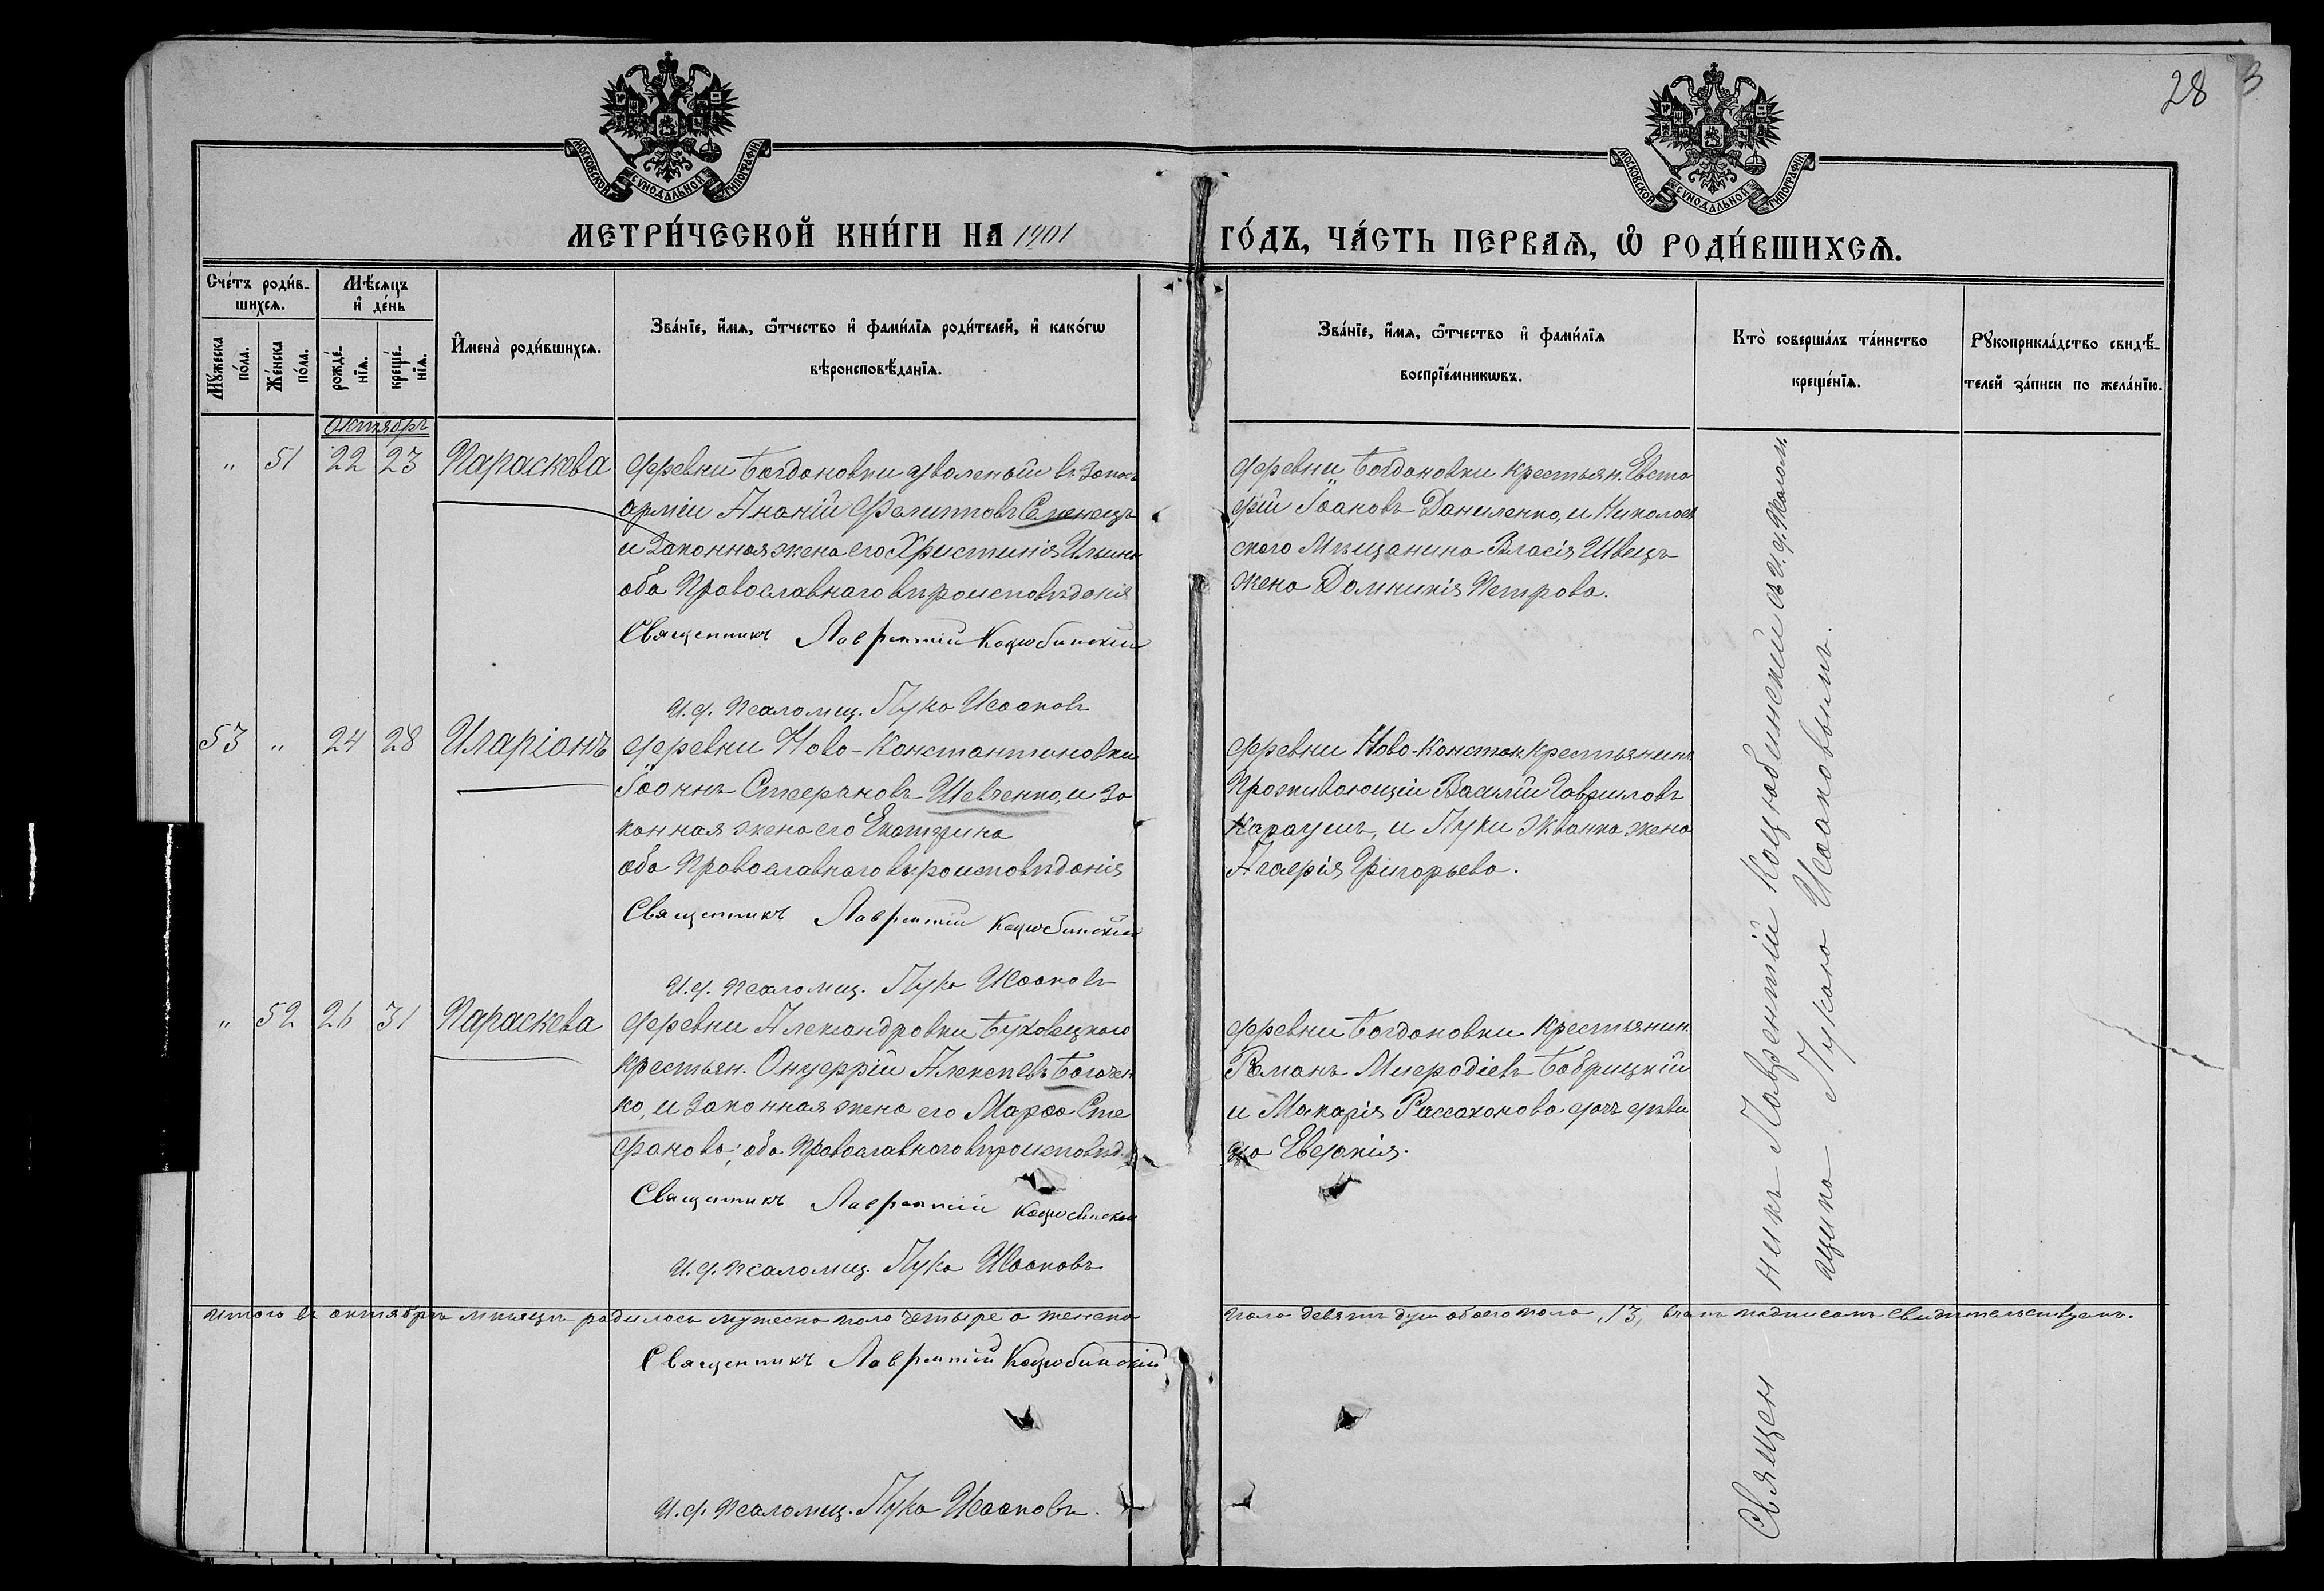 28
МОСКОВСКОЙ СѴНОДАЛЬНОЙ ТИПОГРАФІИ
МОСКОВСКОЙ СѴНОДАЛЬНОЙ ТИПОГРАФІИ
МЕТРИ́ЧЕСКОЙ КНИ́ГИ НА 1901
ГО́ДЪ, ЧА́СТЬ ПЕРВАѦ, Ѽ РОДИ́ВШИХСѦ.
Сче́тъ роди́в-
шихсѧ.
Мѣ́сѧцъ
и҆ де́нь
Мꙋ́жеска
по́ла.
Же́нска
по́ла.
рожде́-
нїѧ.
креще́-
нїѧ.
И҆мена̀ роди́вшихсѧ.
Зва́нїе, и҆́мѧ, ѻ҆́тчество и҆ фами́лїѧ роди́телей, и҆ како́гѡ
вѣроисповѣ́данїѧ.
Зва́нїе, и҆́мѧ, ѻ҆́тчество и҆ фами́лїѧ
воспрїе́мникѡвъ.
Кто̀ соверша́лъ та́инство
креще́нїѧ.
Рꙋкоприкла́дство свидѣ́-
телей за́писи по жела́нїю.
Октябрь
" 51 22 23 Параскова
деревни Богдановки уволеный въ запасъ
арміи Ананій Филипповъ Семенецъ
и законная жена его Христинія Ильина
оба Православнаго вѣроисповѣданія
Священникъ Лаврентій Коцюбинскій
И. д. псаломщ. Лука Исааковъ
деревни Богдановки крестьян. Евста
фій Іоановъ Даниленко, и Николаев
скаго Мѣщанина Власія Швецъ
жена Домникія Петрова.
53 " 24 28 Иларіонъ
деревни Ново-Константиновки
Іоаннъ Стефановъ Шевченко, и за
конная жена его Екатерина
оба Православнаго вѣроисповѣданія
Священникъ Лаврентій Коцюбинскій
И. д. псаломщ. Лука Исааковъ
деревни Ново-Констан. Крестьянинъ
Проживающій Василій Гавриловъ
и Луки жена
Григорьева.
" 52 26 31 Параскева
деревни Александровки Буховецкаго
крестьян. Онуфрій Алексѣевъ Богачен
ко, и законная жена его Марѳа Сте
фанова; оба Православнаго вѣроисповѣд.
Священникъ Лаврентій Коцюбинскій
И. д. псаломщ. Лука Исааковъ
деревни Богдановки крестьянин.
Романъ Мефодіевъ Бобрицкій
и Макарія дочь дѣви
ца Евдокія.
Священ никъ Лаврентій Коцюбинскій съ И. д. Псалом.
щика Лукою Исааковымъ.
Итого въ октябрѣ мѣсяцѣ родилось мужеска пола четыре а женска
пола девять душ обоего пола, 13, въ чемъ подписомъ свидѣтельствуемъ.
Священникъ Лаврентій Коцюбинскій
И. д. Псаломщ. Лука Исааковъ.